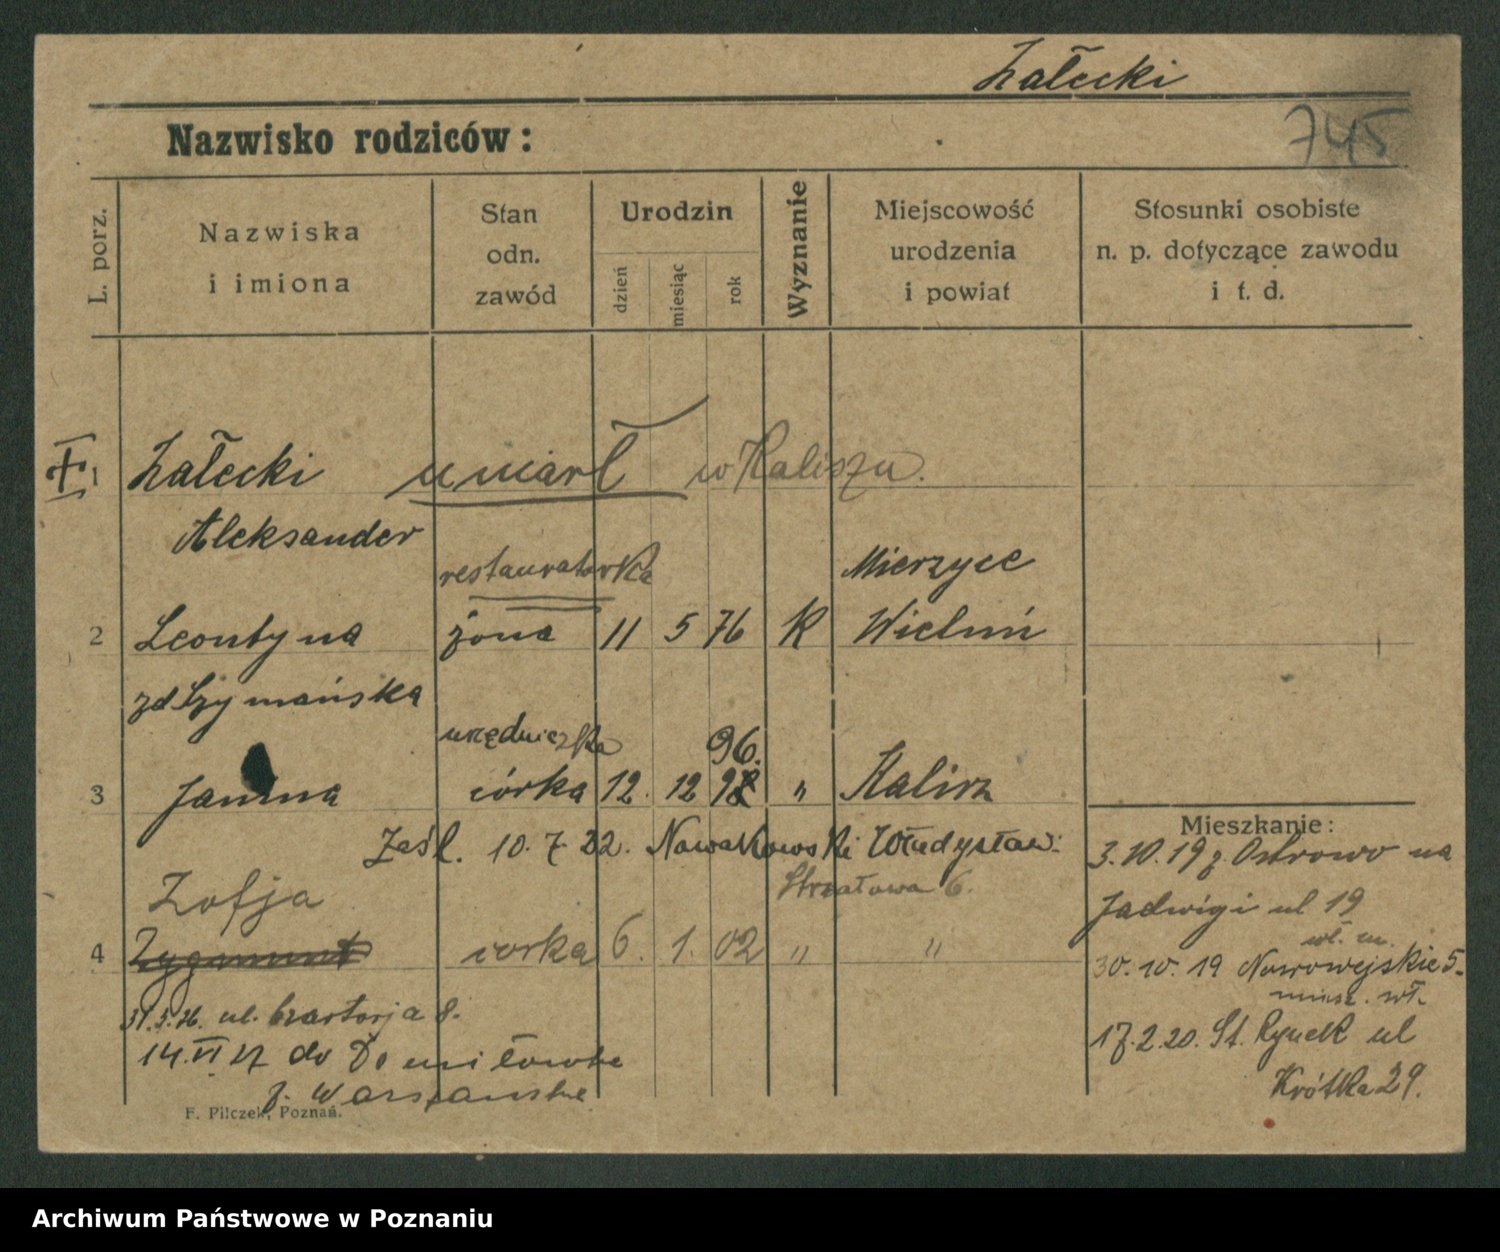 Załecki
745
Nazwisko rodziców:
L. porz.
Nazwiska
i imiona
Stan
odn.
zawód
Urodzin
dzień
miesiąc
rok
Wyznanie
Miejscowość
urodzenia
i powiat
Stosunki osobiste
n. p. dotyczące zawodu
i t. d.
1 Załecki umarł w Kaliszu.
Aleksander
restauratorka Mierzyce
2 Leontyna żona 11 5 76 K Wieluń
zd Szymańska
urzędniczka 96.
3 Janina córka 12. 12 98 " Kalisz
Zaśl. 10. 7. 22. Nawakowski Władysław.
Strzałowa 6.
Zofja
4 Zygmunt corka 6. 1. 02 " "
31.3.26. ul. Czartorja 8.
14.VI 27 do
p. Warszawskie
F. Pilczek, Poznań.
Mieszkanie:
3.10.19 z Ostrowo na
Jadwigi ul 19
wł. m.
30.10.19 Nowowejskie 5.
miesz. wł.
17.2.20. St. Rynek ul
Krótka 29.
Archiwum Państwowe w Poznaniu